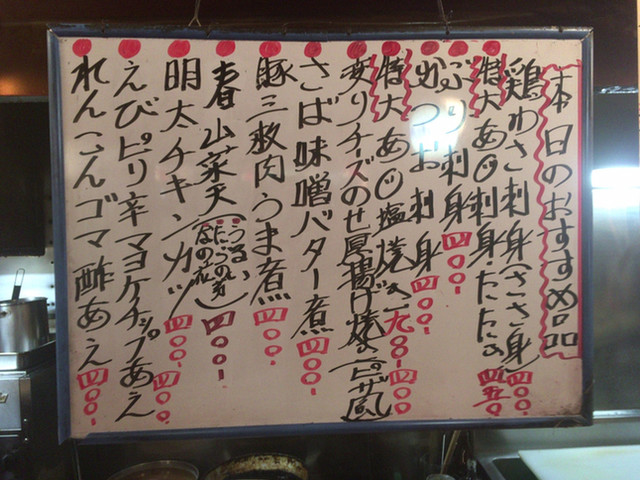 本日のおすすめ品
鶏わさ刺身(ささ身) 四〇〇-
特大あじ刺身たたき 四五〇-
ぶり刺身 四〇〇-
かつお刺身 四〇〇-
特大あじ塩焼き 九〇〇-
変りチーズのせ厚揚げ焼き(ピザ風) 四〇〇
さば味噌バター煮 四〇〇-
豚三枚肉うま煮 四〇〇-
春山菜天(うるい・たらの芽・なの花) 四〇〇-
明太チキンカツ 四〇〇-
えびピリ辛マヨケチャップあえ 四〇〇-
れんこんゴマ酢あえ 四〇〇-